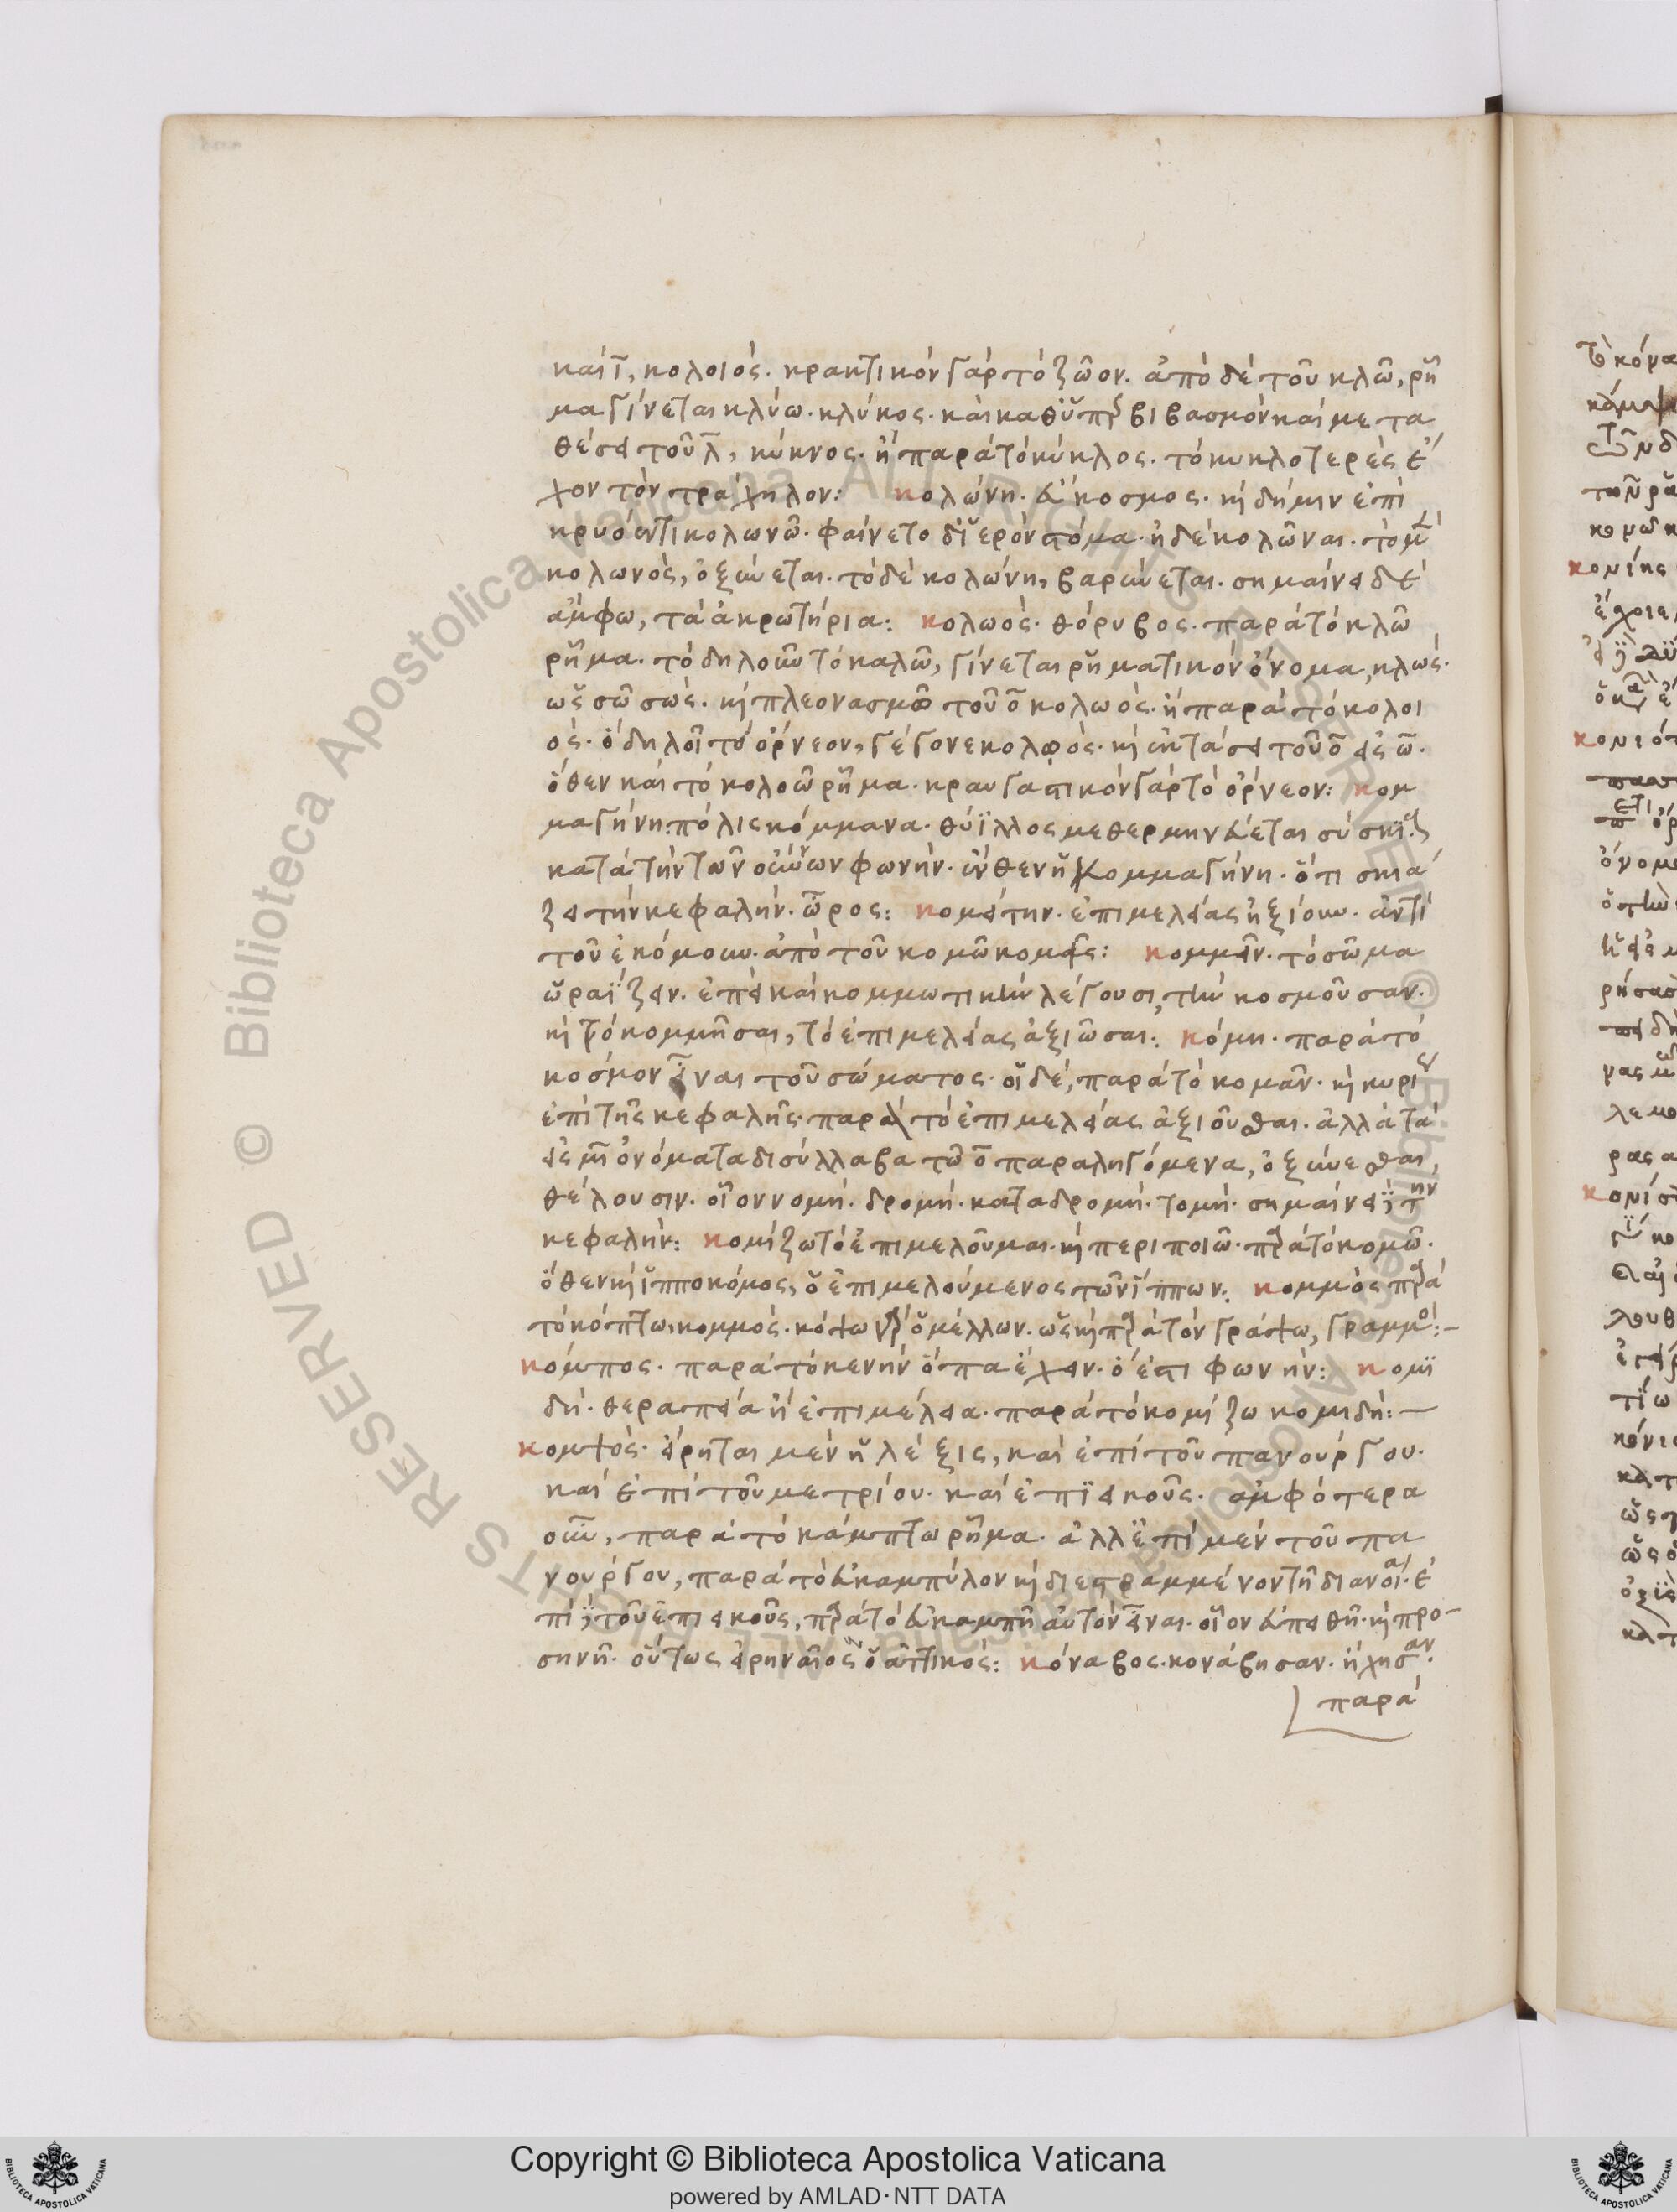 καὶ ῑ, κολοιός. κρακτικὸν γὰρ τὸ ζῶον. ἀπὸ δὲ τοῦ κλῶ, ῥῆ
μα γίνεται κλύω. κλύκος. καὶ καθ ὑπερβιβασμὸν καὶ μετα
θέσει τοῦ λ, κύκνος. ἢ παρὰ τὸ κύκλος. τὸ κυκλοτερὲς ἔ
χον τὸν τράχηλον: κολώνη. εὔκοσμος. καὶ δήμιν ἐπὶ
κρυόεντι κολωνῶ. φαίνετο δ ἱερὸν στόμα. ἠδὲ κολῶναι. τὸ μὲν
κολωνὸς, ὀξύνεται. τὸ δὲ κολώνη, βαρύνεται. σημαίνει δὲ
ἄμφω, τὰ ἀκρωτήρια: κολωὸς. θόρυβος. παρὰ τὸ κλῶ
ῥῆμα. τὸ δηλοῦν τὸ καλῶ, γίνεται ῥηματικὸν ὄνομα, κλωός.
ὡς σῶ σωός. καὶ πλεονασμῶ τοῦ ο κολωός. ἢ παρὰ τὸ κολοι
ὸς. ὃ δηλοῖ τὸ ὄρνεον, γέγονε κολῳός. καὶ ἐκτάσει τοῦ ο εἰς ω.
ὅθεν καὶ τὸ κολοῶ ῥῆμα. κραυγαστικὸν γὰρ τὸ ὄρνεον: κομ
μαγήνη. πόλις κόμμανα. θύϊλλος μεθερμηνεύεται σύσκιος
κατὰ τὴν τῶν σύρων φωνήν. ἔνθεν ἡ κομμαγήνη. ὅτι σκιά
ζει τὴν κεφαλήν. ὦρος: κομείτην. ἐπιμελείας ἠξίουν. ἀντὶ
τοῦ ἐκόμουν. ἀπὸ τοῦ κομῶ κομεῖς: κομμεῖν. τὸ σῶμα
ὡραΐζειν. ἐπεὶ καὶ κομμωτικὴν λέγουσι, τὴν κοσμοῦσαν.
καὶ τὸ κομμῆσαι, τὸ ἐπιμελείας ἀξιῶσαι: κόμη. παρὰ τὸ
κόσμον εἶναι τοῦ σώματος. οἱ δὲ, παρὰ τὸ κομᾶν. καὶ κυρίως
ἐπὶ τῆς κεφαλῆς. παρὰ τὸ ἐπιμελείας ἀξιοῦσθαι. ἀλλὰ τὰ
εἰς μη ὀνόματα δισύλλαβα τῶ ο παραληγόμενα, ὀξύνεσθαι
θέλουσιν. οἷον νομή. δρομή. καταδρομή. τομή. σημαίνει καὶ τὴν
κεφαλήν: κομίζω τὸ ἐπιμελοῦμαι. καὶ περιποιῶ. παρὰ τὸ κομῶ.
ὅθεν καὶ ἱπποκόμος, ὁ ἐπιμελούμενος τῶν ἵππων: κομμὸς παρὰ
τὸ κόπτω κομμός. κόψω γὰρ ὁ μέλλων. ὡς καὶ παρὰ τὸν γράψω, γραμμός:—
κόμπος. παρὰ τὸ κενὴν ὄπα ἔχειν. ὅ ἐστι φωνήν: κομι
δή. θεραπεία ἢ ἐπιμέλεια. παρὰ τὸ κομίζω κομιδή:—
κομψὸς. εἴρηται μὲν ἡ λέξις, καὶ ἐπὶ τοῦ πανούργου.
καὶ ἐπὶ τοῦ μετρίου. καὶ ἐπιεικοῦς. ἀμφότερα
οὖν, παρὰ τὸ κάμπτω ῥῆμα. ἀλλ ἐπὶ μὲν τοῦ πα
νούργου, παρὰ τὸ εὐκαμπύλον καὶ διεστραμμένον τῆ διανοία. ἐ
πὶ καὶ τοῦ ἐπιεικοῦς, παρὰ τὸ εὐκαμπῆ αὐτὸν εἶναι. οἷον εὐπειθῆ. καὶ προ-
σηνῆ. οὕτως εἰρηναῖος ὁ ἀττικός: κόναβος. κονάβησαν. ἤχησαν.
παρὰ